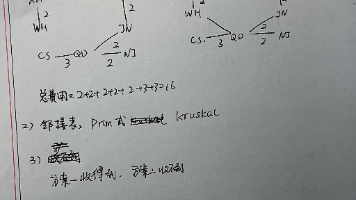 2
2
WH
JN
WH
JN
CS
QD
2
2
NJ
CS
QD
2
2
NJ
3
3
总费用=2+2+2+2+2+3+3=16
2) 邻接表, Prim 或 Kruskal
3)
方案一收得到, 方案二收不到